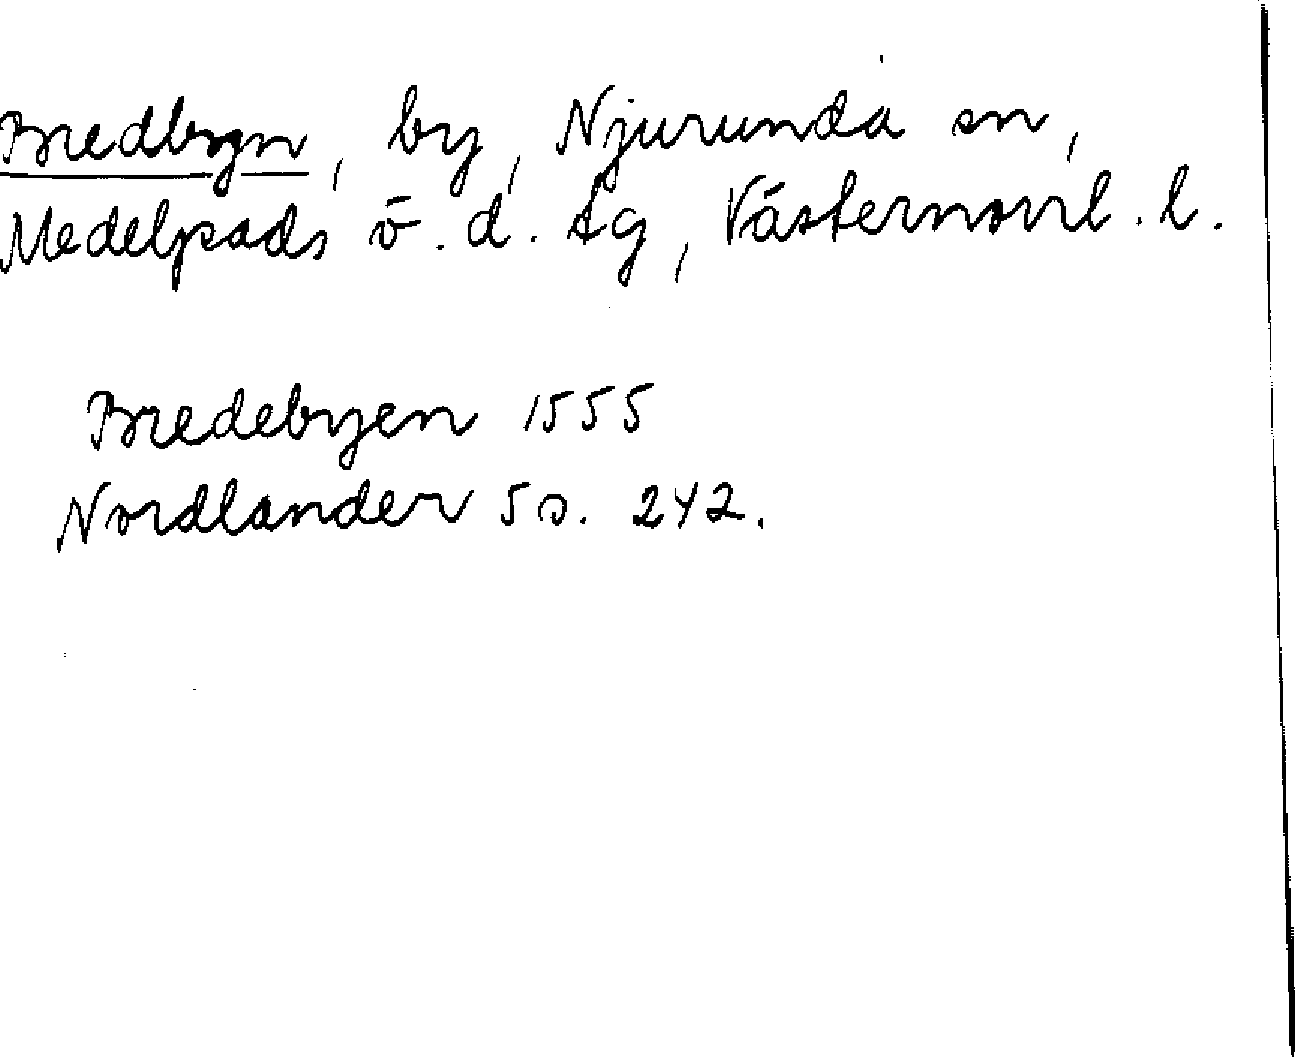 Bredbyn, by, Njurunda sn,
Medelpads ö. d. tg, Västernorrl. l.
Bredebyen 1555
Nordlander 5 s. 242.